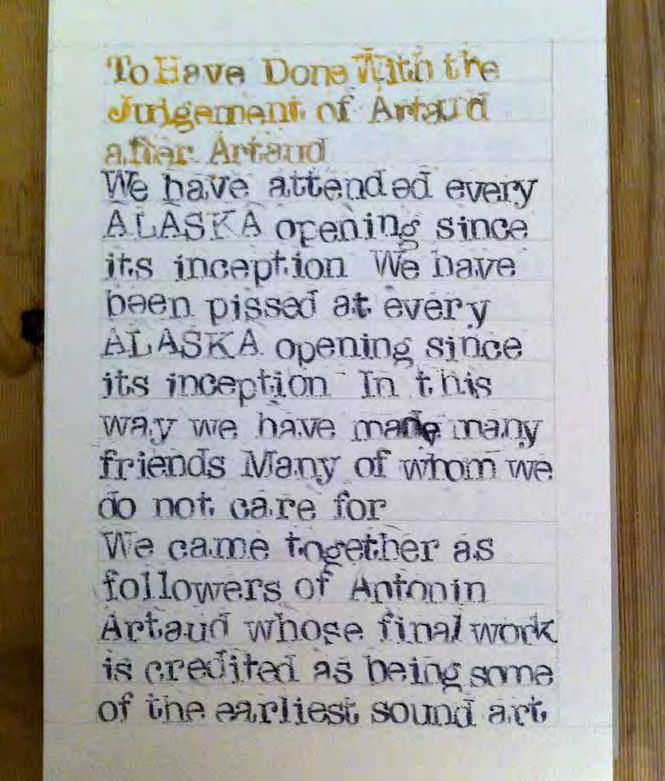 To Have Done With the
Judgement of Artaud
after Artaud
We have attended every
ALASKA opening since
its inception We have
been pissed at every
ALASKA opening since
its inception In this
way we have made many
friends Many of whom we
do not care for
We came together as
followers of Antonin
Artaud whose final work
is credited as being some
of the earliest sound art